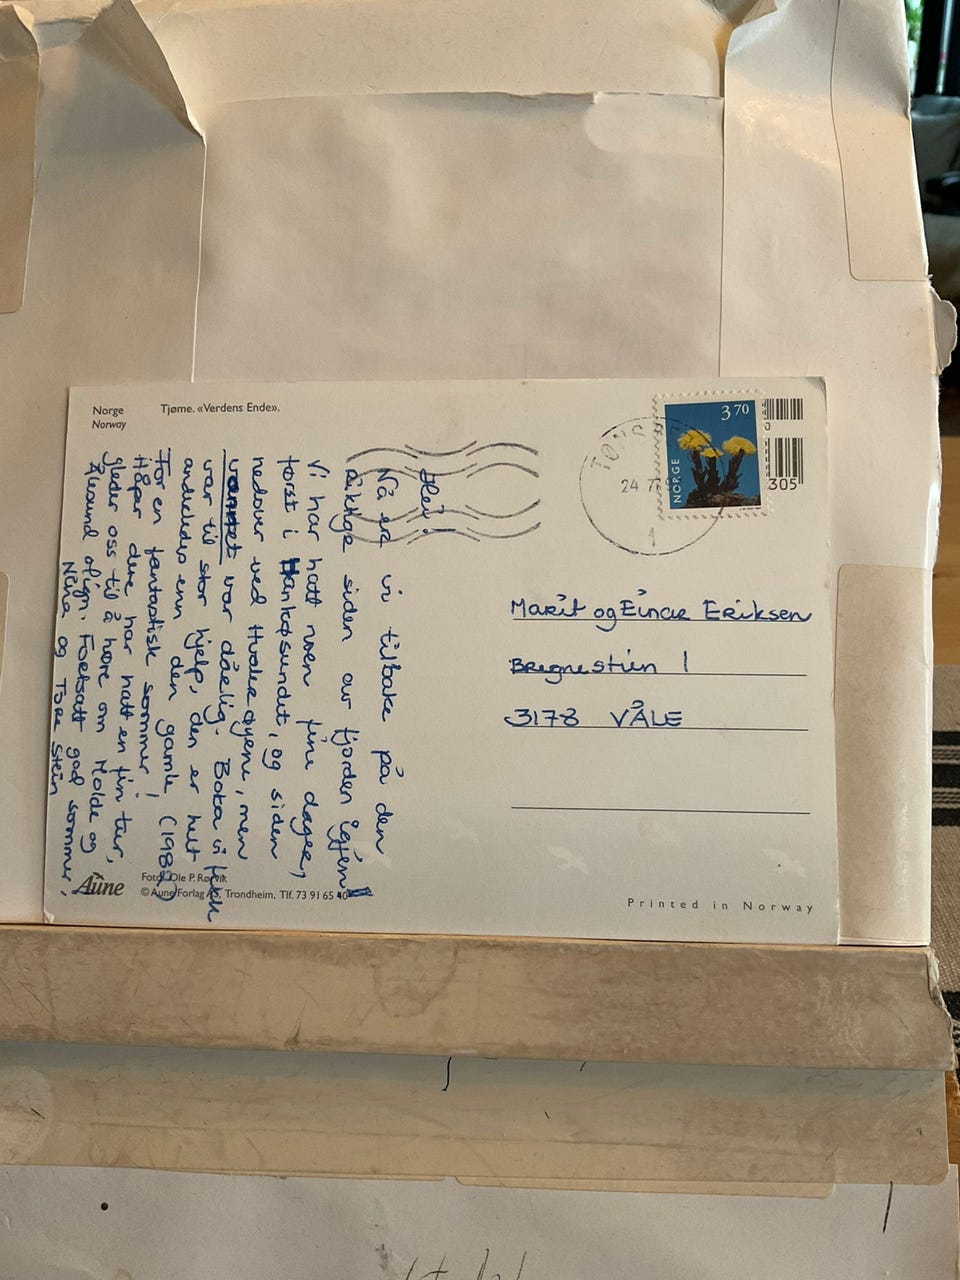 Norge
Norway
Tjøme. «Verdens Ende».
Hei!
Nå er vi tilbake på den
riktige siden av fjorden igjen!
Vi har hatt noen fine dager,
først i Hankøsundet, og siden
nedover ved Hvalerøyene, men
vannet var dårlig. Boka vi fikk
var til stor hjelp, den er helt
anderledes enn den gamle (1982)
For en fantastisk sommer!
Håper dere har hatt en fin tur,
gleder oss til å høre om Molde og
Ålesund olign. Fortsatt god sommer.
Nina og Tore Stein
3 70
NORGE
305
TØNS
24 7
1
Marit og Einar Eriksen
Bregnestien 1
3178 VÅLE
Aune
Foto: Ole P. Rørvik
© Aune Forlag AS, Trondheim, Tlf. 73 91 65 40
Printed in Norway